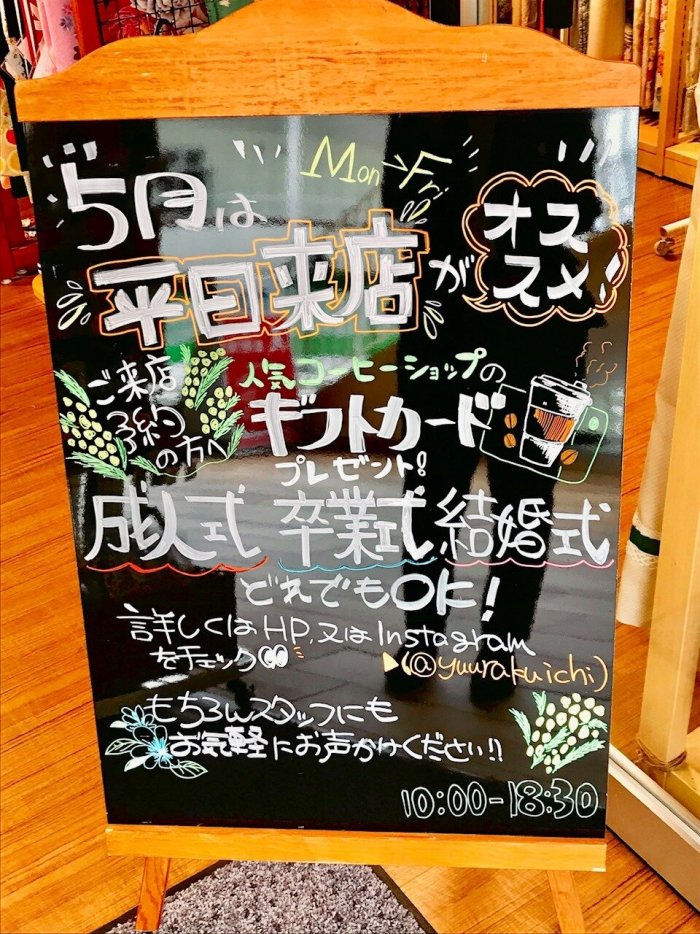 Mon→Fri
5月は
オススメ!
平日来店が
ご来店
予約
の方へ
人気コーヒーショップの
ギフトカード
プレゼント!
成人式 卒業式 結婚式
どれでもOK!
詳しくはHP,又はInstagram
をチェック
▶(@yuurakuichi)
もちろんスタッフにも
お気軽にお声かけください!!
10:00-18:30